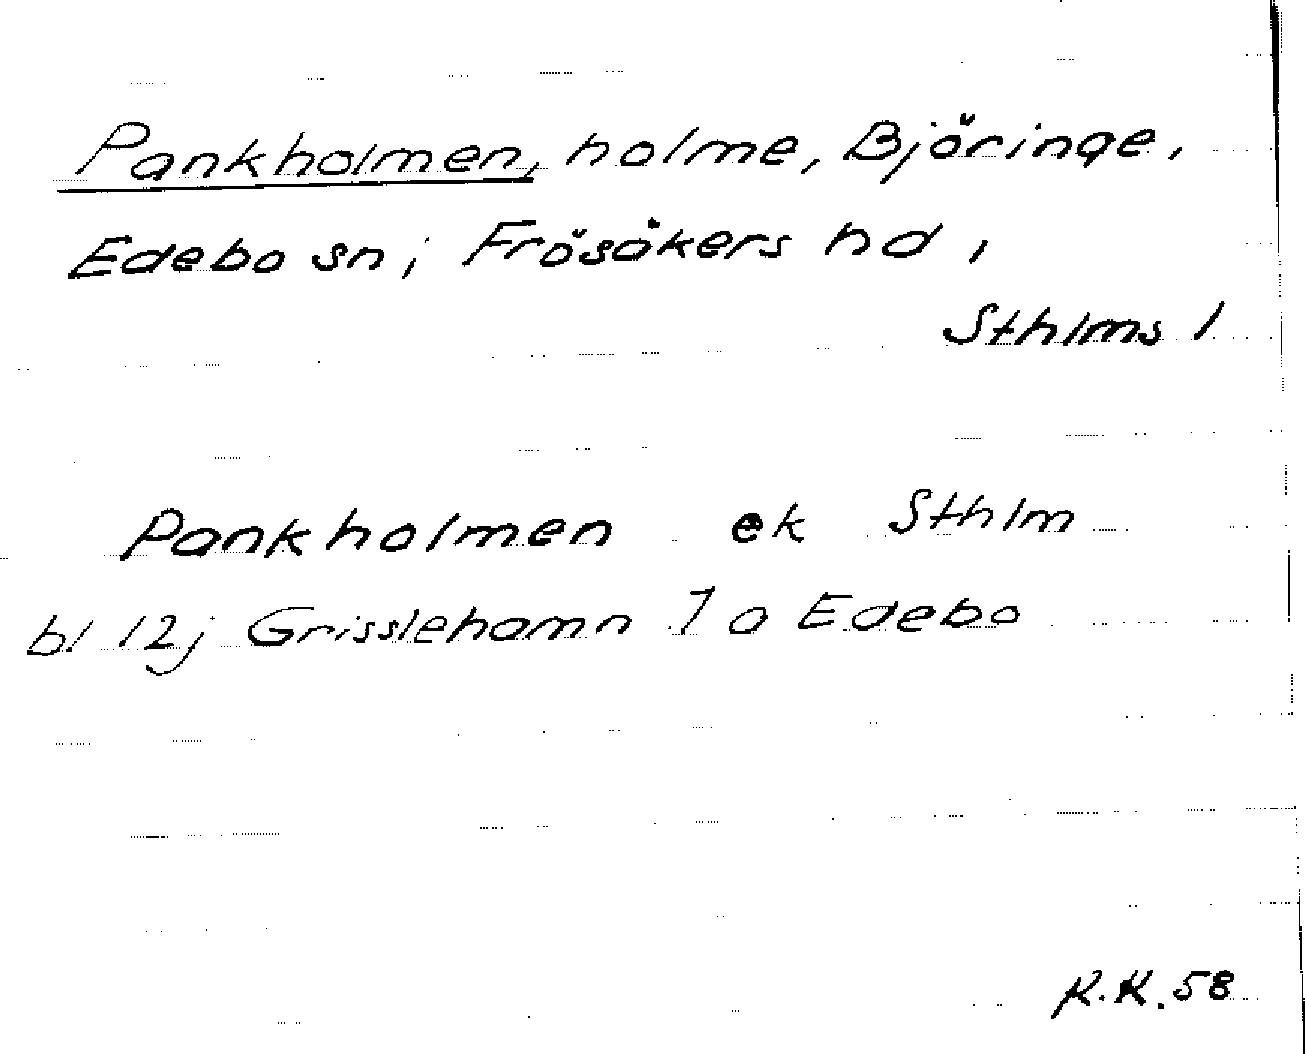 Pankholmen, holme, Bjäringe,
Edebo sn, Frösåkers hd,
Sthlms l
Pankholmen ek Sthlm
bl 12j Grisslehamn 7 a Edebo
R.K. 58